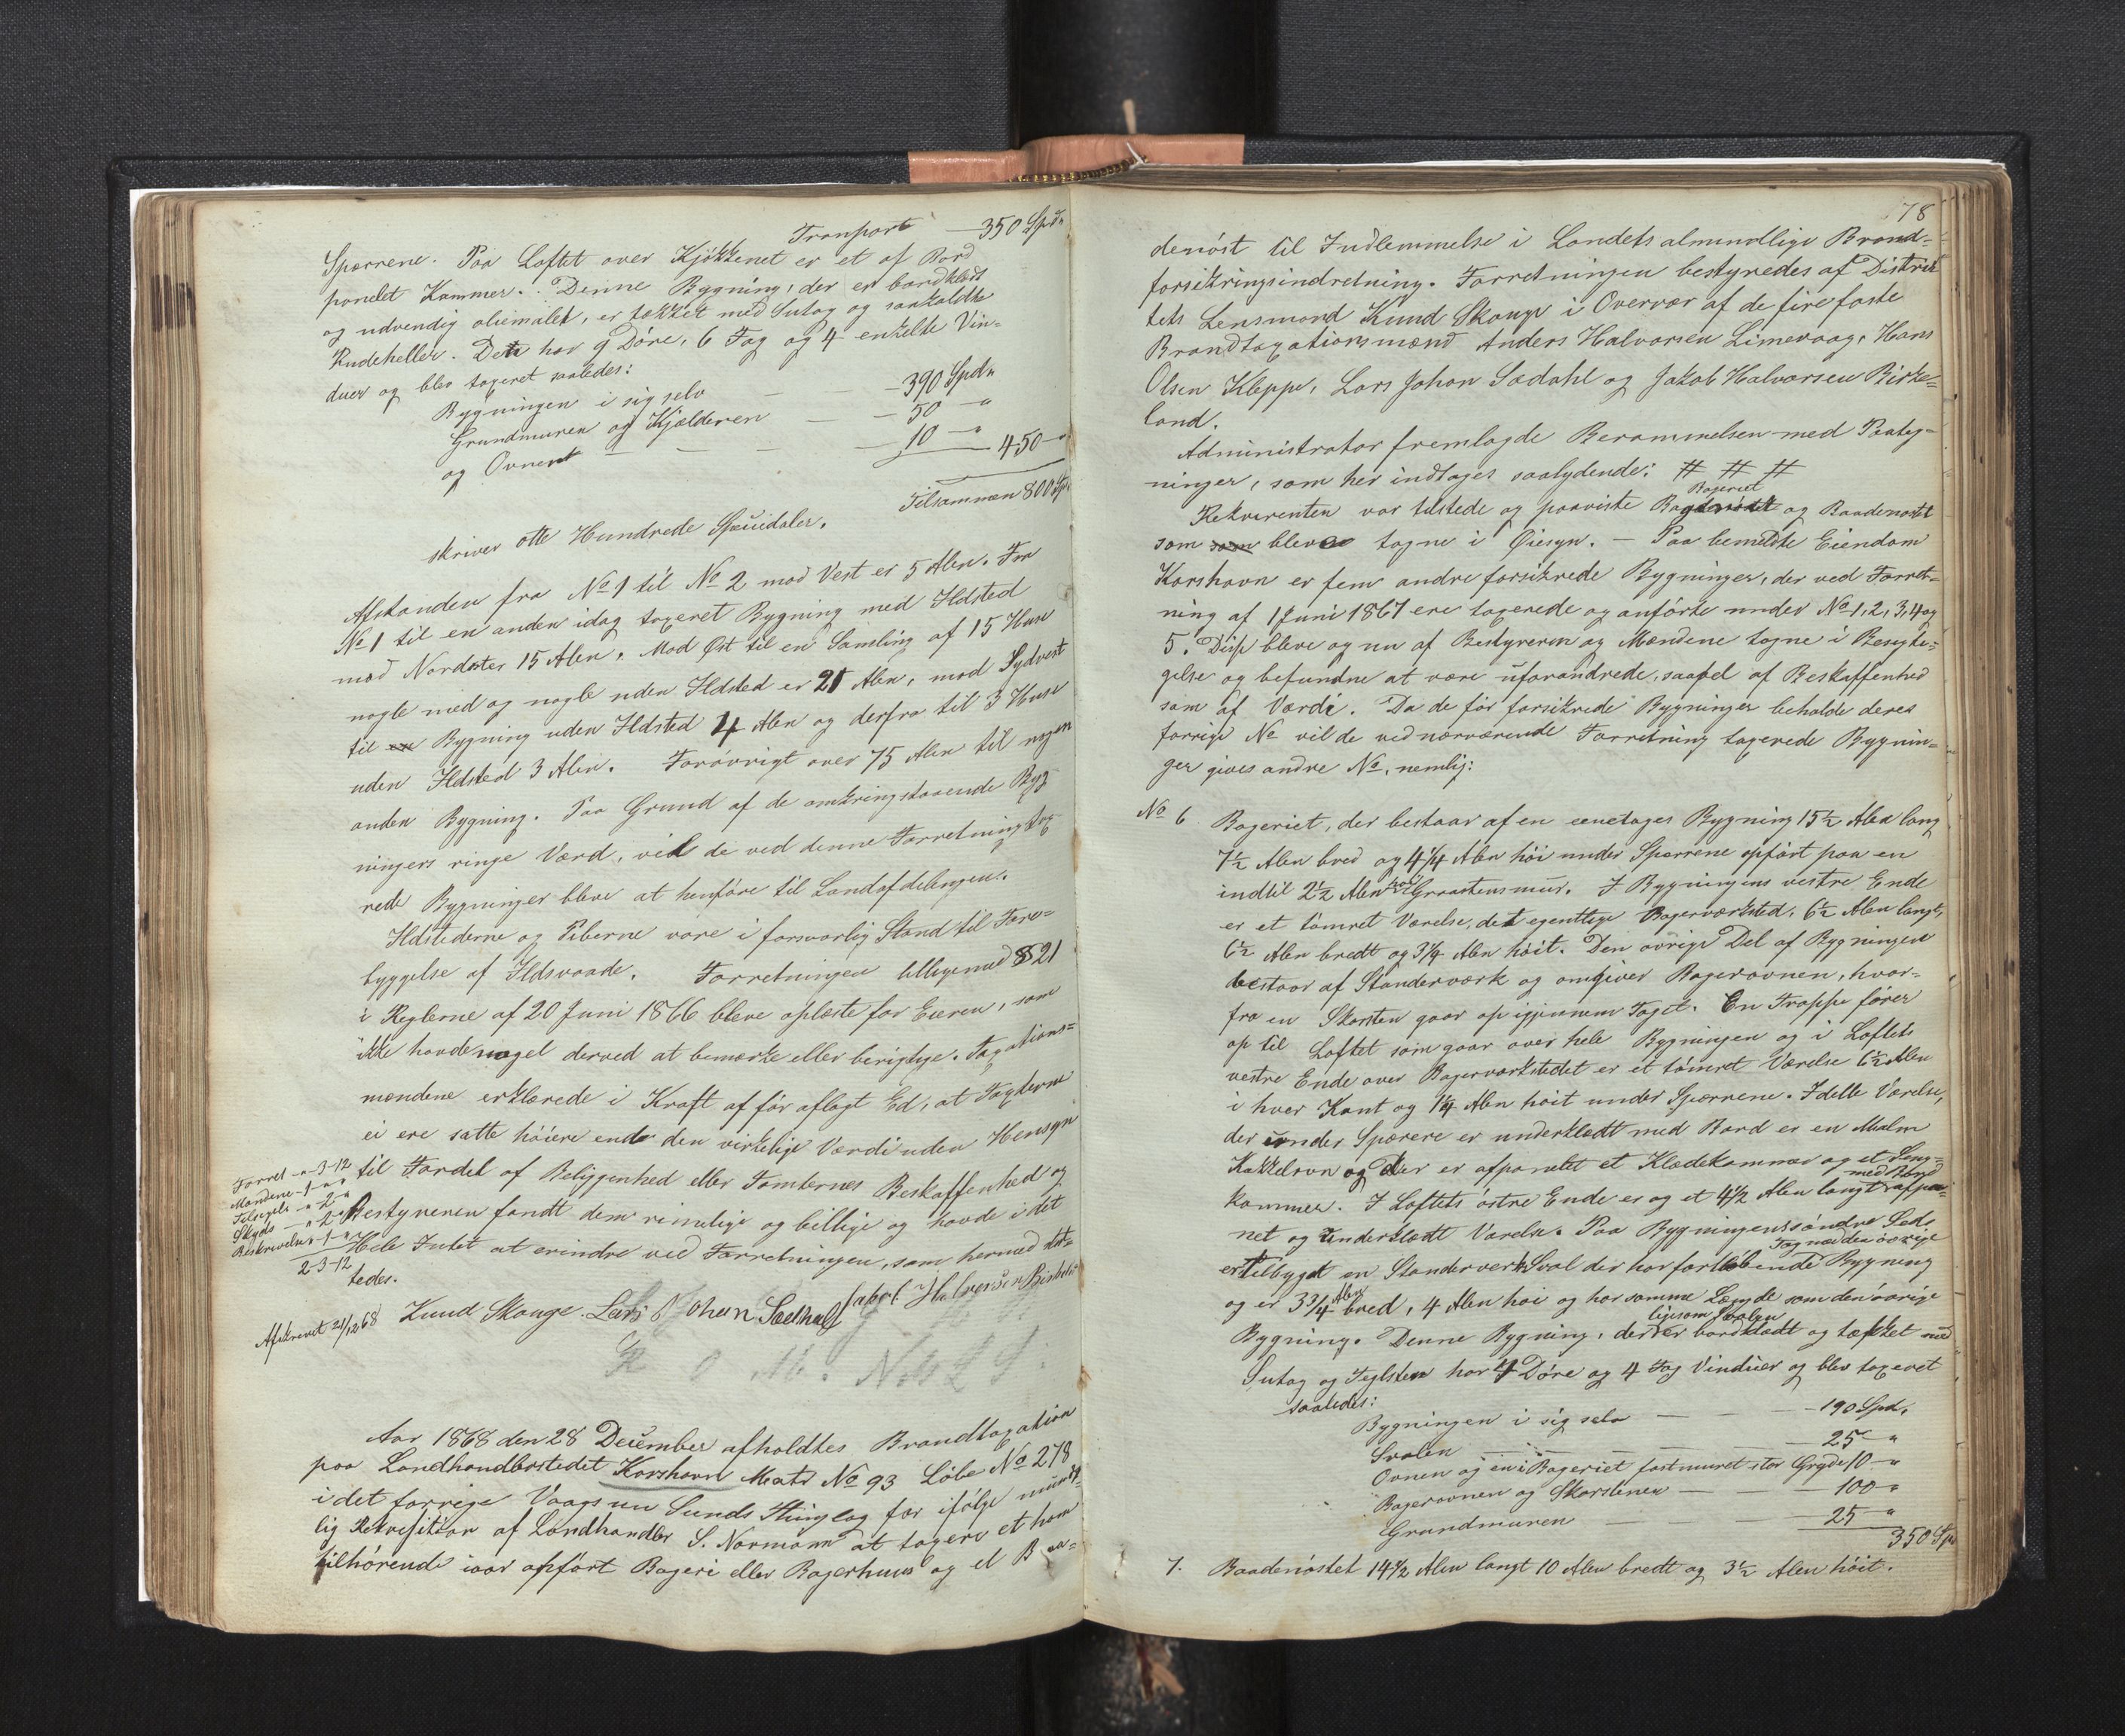 Transport — 350 Spd"
Sperrene. Paa Loftet over Kjökkenet er et af Bord
panelet Kammer. Denne Bygning, der er bordklædt
og udvendig oliemalet, er tækket med Sutag og saakaldte
Rudeheller. Den har 9 Döre, 6 Fag og 4 enkelte Vin-
duer og blev taxeret saaledes:
Bygningen i sig selv — — 390 Spd"
Grundmuren og Kjælderen — — 50 — "
og Ovnene — — — 10 — " 450 — "
Tilsammen 800 Sp
skriver otte Hundrede Speciedaler.
Afstanden fra No 1 til No 2 mod Vest er 5 Alen. Fra
No 1 til en anden idag taxeret Bygning med Ildsted
mod Nordost er 15 Alen. Mod Øst til en Samling af 15 Huse
nogle med og nogle uden Ildsted er 21 Alen, mod Sydvest
til en Bygning uden Ildsted 4 Alen og derfra til 3 Huse
uden Ildsted 3 Alen. Forövrigt over 75 Alen til nogen
anden Bygning. Paa Grund af de omkringstaaende Byg-
ningers ringe Værd, vil de ved denne Forretning tax-
rede Bygninger blive at henföre til Landafdelingen.
Ildstederne og Piberne vare i forsvarlig Stand til Fore-
byggelse af Ildsvaade. Forretningen tilligemed § 21
i Reglerne af 20 Juni 1866 bleve oplæste for Eieren, som
ikke havde noget derved at bemærke eller berigtige. Taxations-
mændene erklærede i Kraft af för aflagt Ed, at Taxterne
ei ere satte höiere end den virkelige Værdi uden Hensyn
til Fordel af Beliggenhed eller Tomternes Beskaffenhed og
Bestyreren fandt dem rimelige og billige og havde i det
Hele Intet at erindre ved Forretningen, som hermed slut-
tedes.
Forret - " - 3 - 12
Mændene - 1 - " - "
Tilsigels - " - 2 - "
Skyds — " - 2 - "
Beskrivelse - 1 - " - "
2 - 3 - 12
Afskrevet 21/12 68
Knud Skauge. Lars Johan Sædahl Jakob Halvorsen Birkeland
Aar 1868 den 28 December afholdtes Brandtaxation
paa Landhandlerstedet Korshavn Matr No 93 Löbe No 278
i det forrige Vaags nu Sunds Thinglag for ifölge mundt-
lig Rekvisition af Landhandler S. Normann at taxere et ham
tilhörende iaar opfört Bageri eller Bagerhuus og et Baa-
78
denöst til Indlemmelse i Landets almindelige Brand-
forsikringsindretning. Forretningen bestyredes af Distrik-
tets Lensmand Knud Skauge i Overvær af de fire faste
Brandtaxationsmænd Anders Halvorsen Limevaag, Hans
Olsen Kleppe, Lars Johan Sædahl og Jakob Halvorsen Birke-
land.
Administrator fremlagde Berammelsen med Paateg-
ninger, som her indtages saalydende: # # #
Bageriet
Rekvirenten var tilstede og paaviste og Baadenöstet
som som bleve tagne i Øiesyn. — Paa bemeldte Eiendom
Korshavn er fem andre forsikrede Bygninger, der ved Forret-
ning af 1 Juni 1867 ere taxerede og anförte under No 1, 2, 3, 4 og
5. Disse bleve og nu af Bestyreren og Mændene tagne i Besigti-
gelse og befundne at være uforandrede, saavel af Beskaffenhed
som af Værdi. Da de för forsikrede Bygninger beholde deres
forrige No vil de ved nærværende Forretning taxerede Bygnin-
ger gives andre No, nemlig:
No 6 Bageriet, der bestaar af en eenetages Bygning 15 1/2 Alen lang
7 1/2 Alen bred og 4 1/4 Alen höi under Sperrene opfört paa en
indtil 2 1/2 Alen höi Graastensmur. I Bygningens vestre Ende
er et tömret Værelse, det egentlige Bagerværksted, 6 1/2 Alen langt,
6 1/2 Alen bredt og 3 1/4 Alen höit. Den övrige Del af Bygningen
bestaar af Standerværk og omgiver Bagerovnen, hvor-
fra en Skorsten gaar op igjennem Taget. En Trappe förer
op til Loftet som gaar over hele Bygningen og i Loftets
vestre Ende over Bagerværkstedet er et tömret Værelse 6 1/2 Alen
i hver Kant og 1 1/4 Alen höit under Sperrene. I dette Værelse,
der under Sperrene er underklædt med Bord er en Malm
Kakkelovn og der er afpanelet et Klædekammer og et Senge-
kammer. I Loftets östre Ende er og et 4 1/2 Alen langt med Bord afpa-
net og underklædt Værelse. Paa Bygningens söndre Side
er tilbygd en Standerverk Sval der har fortlöbende Tag med den övrige Bygning
og er 3 3/4 Alen bred, 4 Alen höi og har samme Længde som den övrige
Bygning. Denne Bygning, der ligesom Svalen er bordklædt og tækket med
Sutag og Teglsten har 4 Döre og 4 Fag Vinduer og blev taxeret
saaledes:
Bygningen i sig selv — — — 190 Spd.
Svalen — — — — — 25 — "
Ovnen og en i Bageriet fastmuret stor Gryde 10 — "
Bagerovnen og Skorstenen — — — 100 — "
Grundmuren — — — — 25 — "
350 Sp
7. Baadenöstet 14 1/2 Alen langt 10 Alen bredt og 3 1/2 Alen höit.